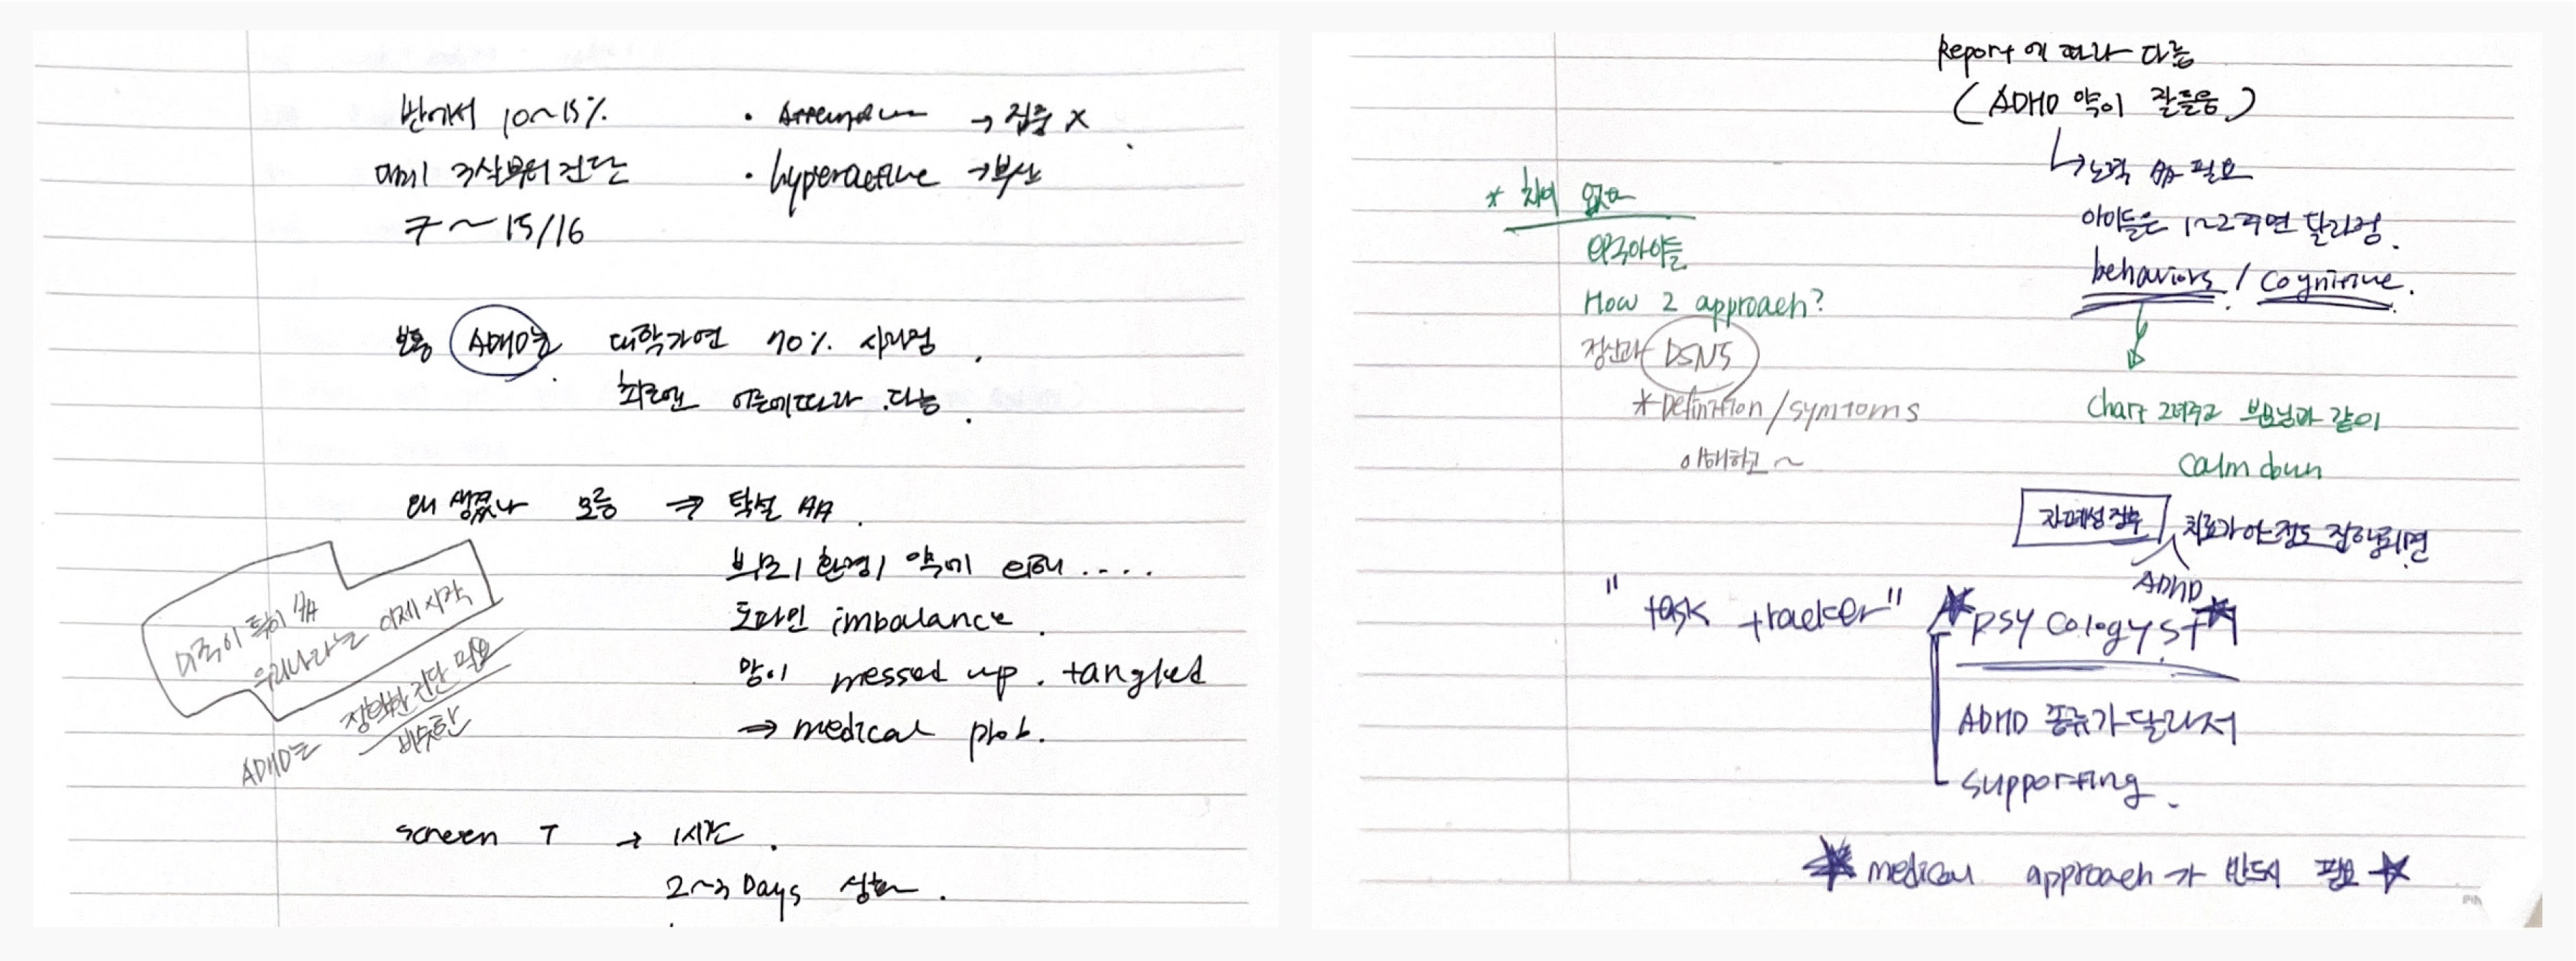 반에서 10~15%
· → 집중 X
미미 3살부터 진단
· hyperactive → 부산
7 ~ 15/16
보통 ADHD는 대학가면 70% 사라짐.
최근엔 어른에 따라 다름.
왜 생겼나 모름 ⇒ 학설 많음.
부모 / 환경 / 약에 의해 ....
도파민 imbalance.
망이 messed up. tangled
⇒ medical prob.
미국이 특히
우리나라는 이제 시작
ADHD는 정확한 진단 필요
비슷한
screen T → 1시간.
2~3 Days
Report에 따라 다름
(ADHD 약이 잘들음)
↳ 노력 필요
아이들은 1~2주면 달라짐.
behaviors / cognitive.
Chart 그려주고 부모님과 같이
calm down
* 차이 없음
한국아이들
How 2 approach?
정신과 DSM5
* Definition / symtoms
이해하고 ~
자폐성 치료가 어느정도 진행되면
ADHD
"task tracker" ★psycologyst★
ADHD 종류가 달라서
supporting.
★ medical approach가 반드시 필요 ★